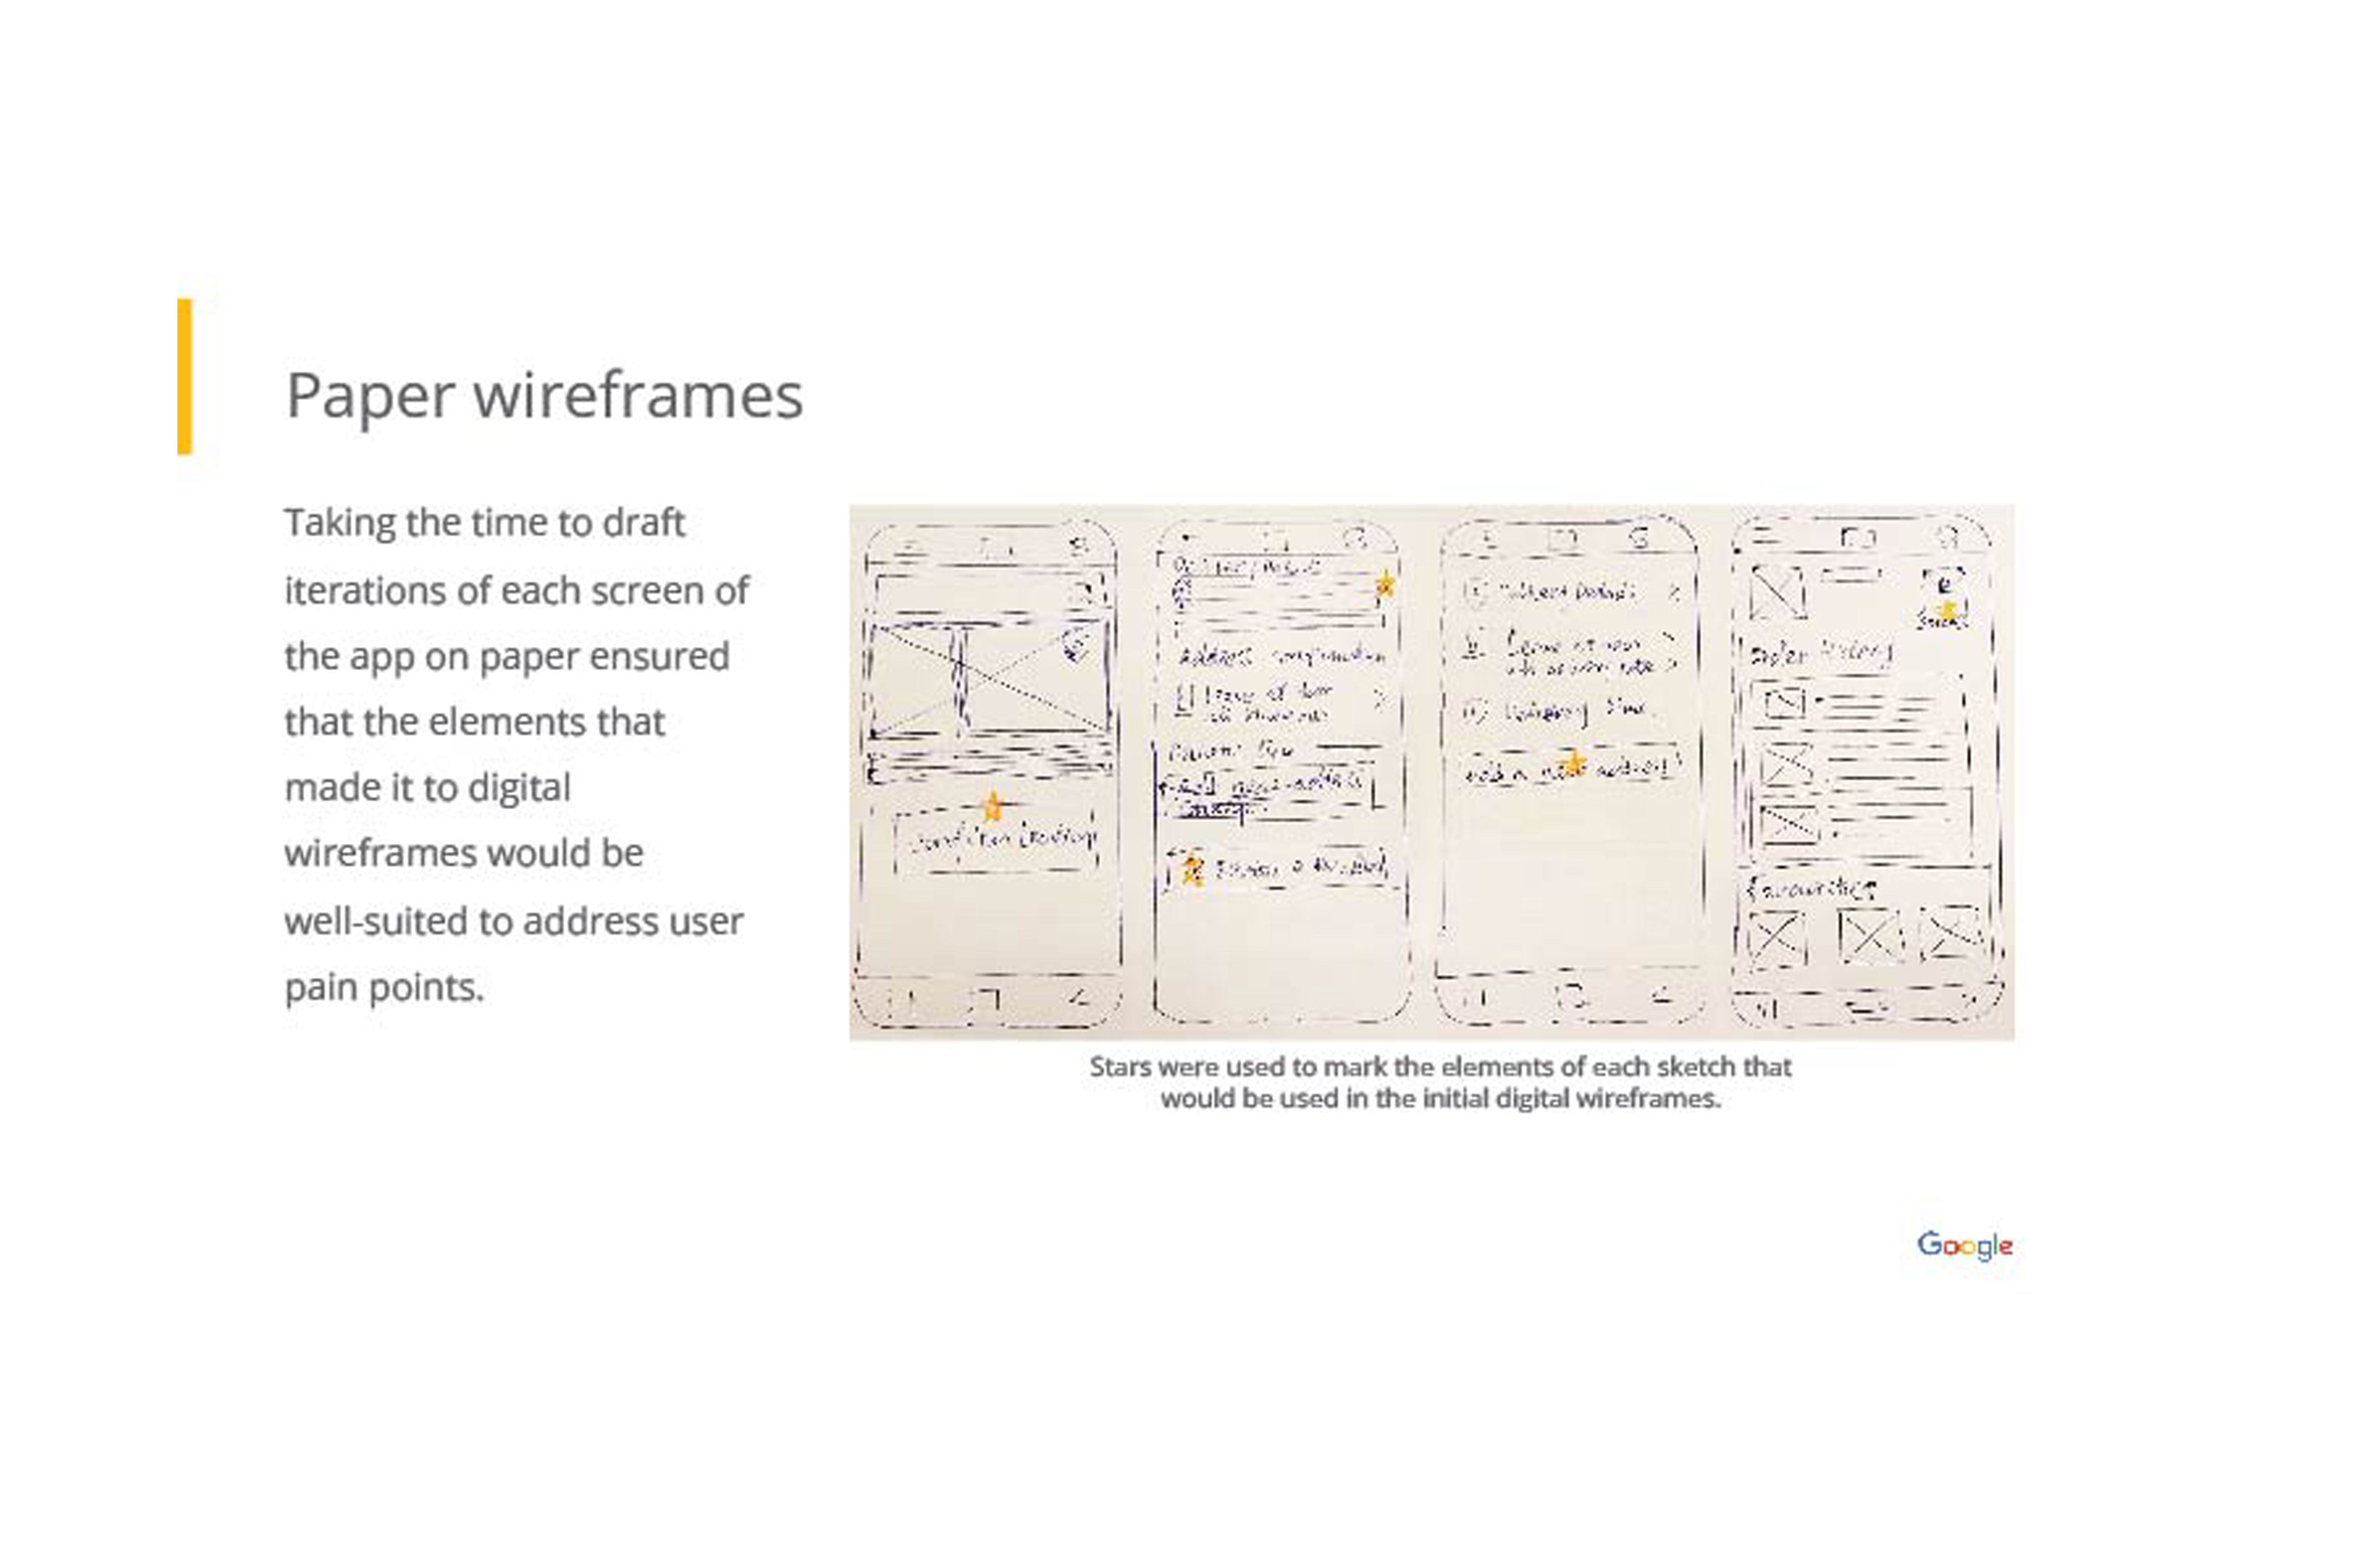 Paper wireframes
Taking the time to draft
iterations of each screen of
the app on paper ensured
that the elements that
made it to digital
wireframes would be
well-suited to address user
pain points.
Address confirmation
Order History
Favourites
Stars were used to mark the elements of each sketch that
would be used in the initial digital wireframes.
Google